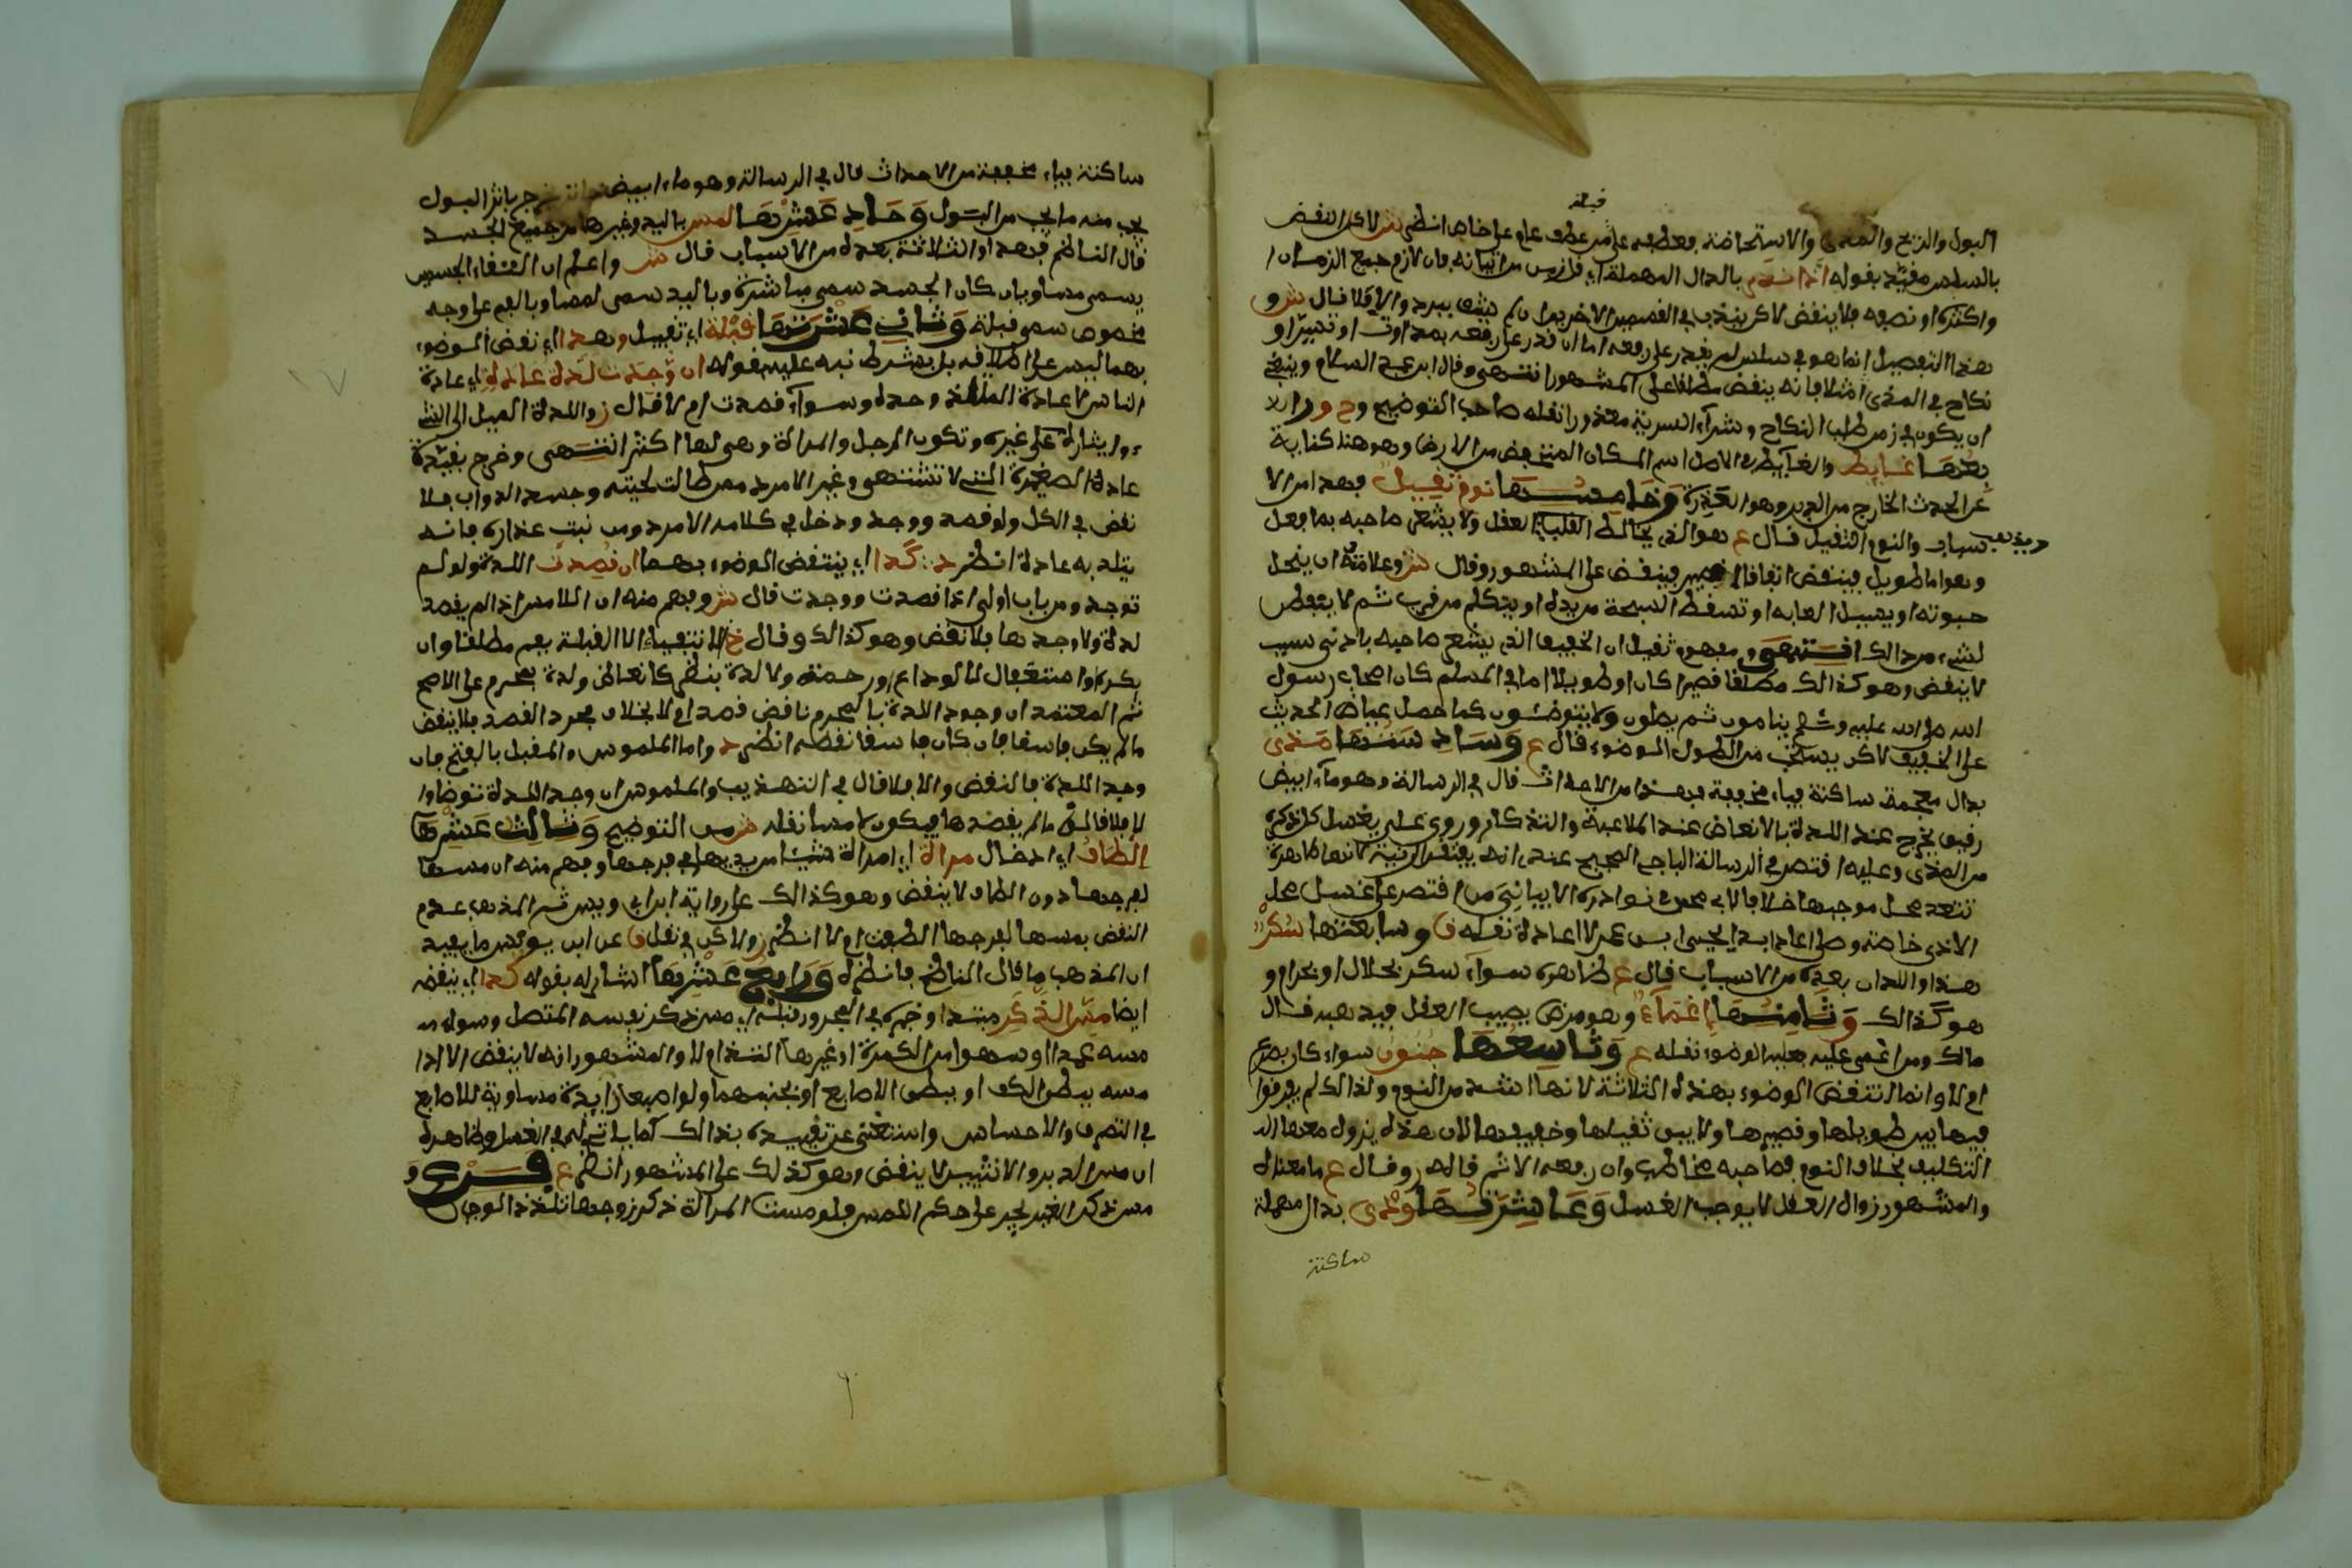 قبله
البول والريح والمذي والاستحاضة فعطفه على من عطف عام على خاص انظر ش لاكن النقض
بالسلس مقيد بقوله اذا ندر بالدال المهملة اي قل زمن اتيانه فان لازم جميع الزمان ا
واكثره او نصفه فلا ينقض لاكن يندب في القسمين الاخيرين ان لم يشق ببرد والا فلا قال ش و
هذا التفصيل انما هو في سلس لم يقدر على رفعه اما ان قدر على رفعه بمداوت او تسر او
نكاح في المذي مثلا فانه ينقض مطلقا على المشهور انتهى وقال ابن عبد السلام وينبغي
ان يكون في زمن طلب النكاح وشراء السرية معذورا نقله صاحب التوضيح و ح ورا
بعها غايط والغايط في الاصل اسم المكان المنخفض من الارض وهو هنا كناية
عن الحدث الخارج من الدبر وهو العذرة وخامسها نوم ثقيل فهذا من الا
سباب والنوم الثقيل قال ع هو الذي يخالط القلب العقل ولا يشعر صاحبه بما فعل
وهو اما طويل فينقض اتفاقا او قصير فينقض على المشهور وقال ش وعلامته ان ينحل
حبوته او يسيل لعابه او تسقط السبحة من يده او يتكلم من قرب ثم لا يتفطن
لشيء من ذالك انتهى ومفهوم ثقيل ان الخفيف الذي يشعر صاحبه بادنى سبب
لا ينقض وهو كذالك مطلقا قصيرا كان او طويلا اما في المسلم كان اصحاب رسول
الله صلى الله عليه وسلم ينامون ثم يصلون ولا يتوضئون كما حمل عياض الحديث
على الخفيف لاكن يستحب من الطول الوضوء قال ع وسادستها مذي
بذال معجمة ساكنة فياء مخففة فهذا من الاحداث قال في الرسالة وهو ماء ابيض
رقيق يخرج عند اللذة بالانعاض عند الملاعبة والتذكار وروى علي يغسل كل ذكره
من المذي وعليه اقتصر في الرسالة الباجي الصحيح عندي انه يفتقر لنية لانها طاهرة
تتعد محل موجبها خلافا لابي محمد في نوادره الابياني من اقتصر على غسل محل
الاذى خاصة وصلى اعاد ابدا يحيى ابن عمر لا اعادة نقله ق وسابعتها سكر
هذا واللذان بعده من الاسباب قال ع ظاهره سواء سكر بحلال او بحرام و
هو كذالك وثامنها اغماء وهو مرض يصيب العقل فيذهبه قال
مالك ومن اغمي عليه فعليه الوضوء نقله ع وتاسعها جنون سواء كان بصرع
ام لا وانما انتقض الوضوء بهذه الثلاثة لانها اشد من النوم ولذالك لم يفرقوا
فيها بين طويلها وقصيرها ولا بين ثقيلها وخفيفها لان هذه يزول معها ال
التكليف بخلاف النوم فصاحبه مخاطب وان رفعه الاثم قاله ز وقال ع ما معناه
والمشهور زوال العقل لا يوجب الغسل وعاشرتها ودي بدال مهملة
ساكنة
ساكنة فياء مخففة من الاحداث قال في الرسالة وهو ماء ابيض خاثر يخرج باثر البول
يجب منه ما يجب من البول وحادي عشرها لمس باليد وغيرها من جميع الجسد
قال الناظم فهذا والثلاثة بعده من الاسباب قال ش واعلم ان التقاء الجسمين
يسمى مسا وبان كان الجسد سمي مباشرة وباليد سمي لمسا وبالفم على وجه
مخصوص سمي قبلة وثاني عشرتها قبلة اي تقبيل وهذا اي نقض الوضوء
بهما ليس على اطلاقه بل بشرط نبه عليه بقوله ان وجدت لذة عادة اي عادة
الناس لا عادة الملتذ وحده وسواء قصدت ام لا قال ز واللذة الميل الى الشي
ء وايثاره على غيره وتكون للرجل والمراة وهي لها اكثر انتهى وخرج بقيد
عادة الصغيرة التي لا تشتهى وغير الامرد ممن طالت لحيته وجسد الدواب فلا
نقض في الكل ولو قصد ووجد ودخل في كلامه الامرد ومن نبت عذاره فانه
يتلذ به عادة انظر د كذا اي ينتقض الوضوء بهما ان قصدت اللذة ولو لم
توجد ومن باب اولى اذا قصدت ووجدت قال ش وفهم منه ان اللامس اذا لم يقصد
لذة ولا وجدها فلا نقض وهو كذالك وقال خ لا انتفيا الا القبلة بفم مطلقا وان
بكره او استغفال لا لوداع او رحمة ولا لذة بنظر كانعاظ ولذة بمحرم على الاصح
ثم المعتمد ان وجود اللذة بالمحرم ناقض قصد ام لا بخلاف مجرد القصد فلا ينقض
مالم يكن فاسقا فان كان فاسقا نقضه انظر د واما الملموس والمقبل بالفتح فان
وجد اللذة فالنقض والا فلا قال في التهذيب والملموس ان وجد اللذة توضا وا
لا فلا قال ق مالم يقصدها فيكون لامسا نقله ش من التوضيح وثالث عشرها
الطاف اي ادخال مراة اي امراة شيئا من يديها في فرجها وفهم منه ان مسها
لفرجها دون الطاف لا ينقض وهو كذالك على رواية ابن ابي اويس ثم المذهب عدم
النقض بمسها لفرجها الطفت ام لا انظر ز ولاكن في نقل ق عن ابن يونس ما يفيد
ان المذهب ما قال الناظم فانظره ورابع عشرها اشار له بقوله كذا اي ينقض
ايضا مس الذكر مبتدا وخبره في المجرور قبله اي مس ذكر نفسه المتصل وسواء
مسه عمدا او سهوا من الكمرة او غيرها التذ ام لا والمشهور انه لا ينقض الا اذا
مسه ببطن الكف او ببطن الاصابع او بجنبهما ولو اصبعا زايدة مساوية للاصابع
في التصرف والاحساس واستغنى عن تقييده بذالك لما ياتي له في الغسل وظاهره
ان مس الدبر والانثيين لا ينقض وهو كذلك على المشهور انظر ع فرع و
مس ذكر الغير يجري على حكم اللمس فلو مست المراة ذكر زوجها تلذذا لوجب